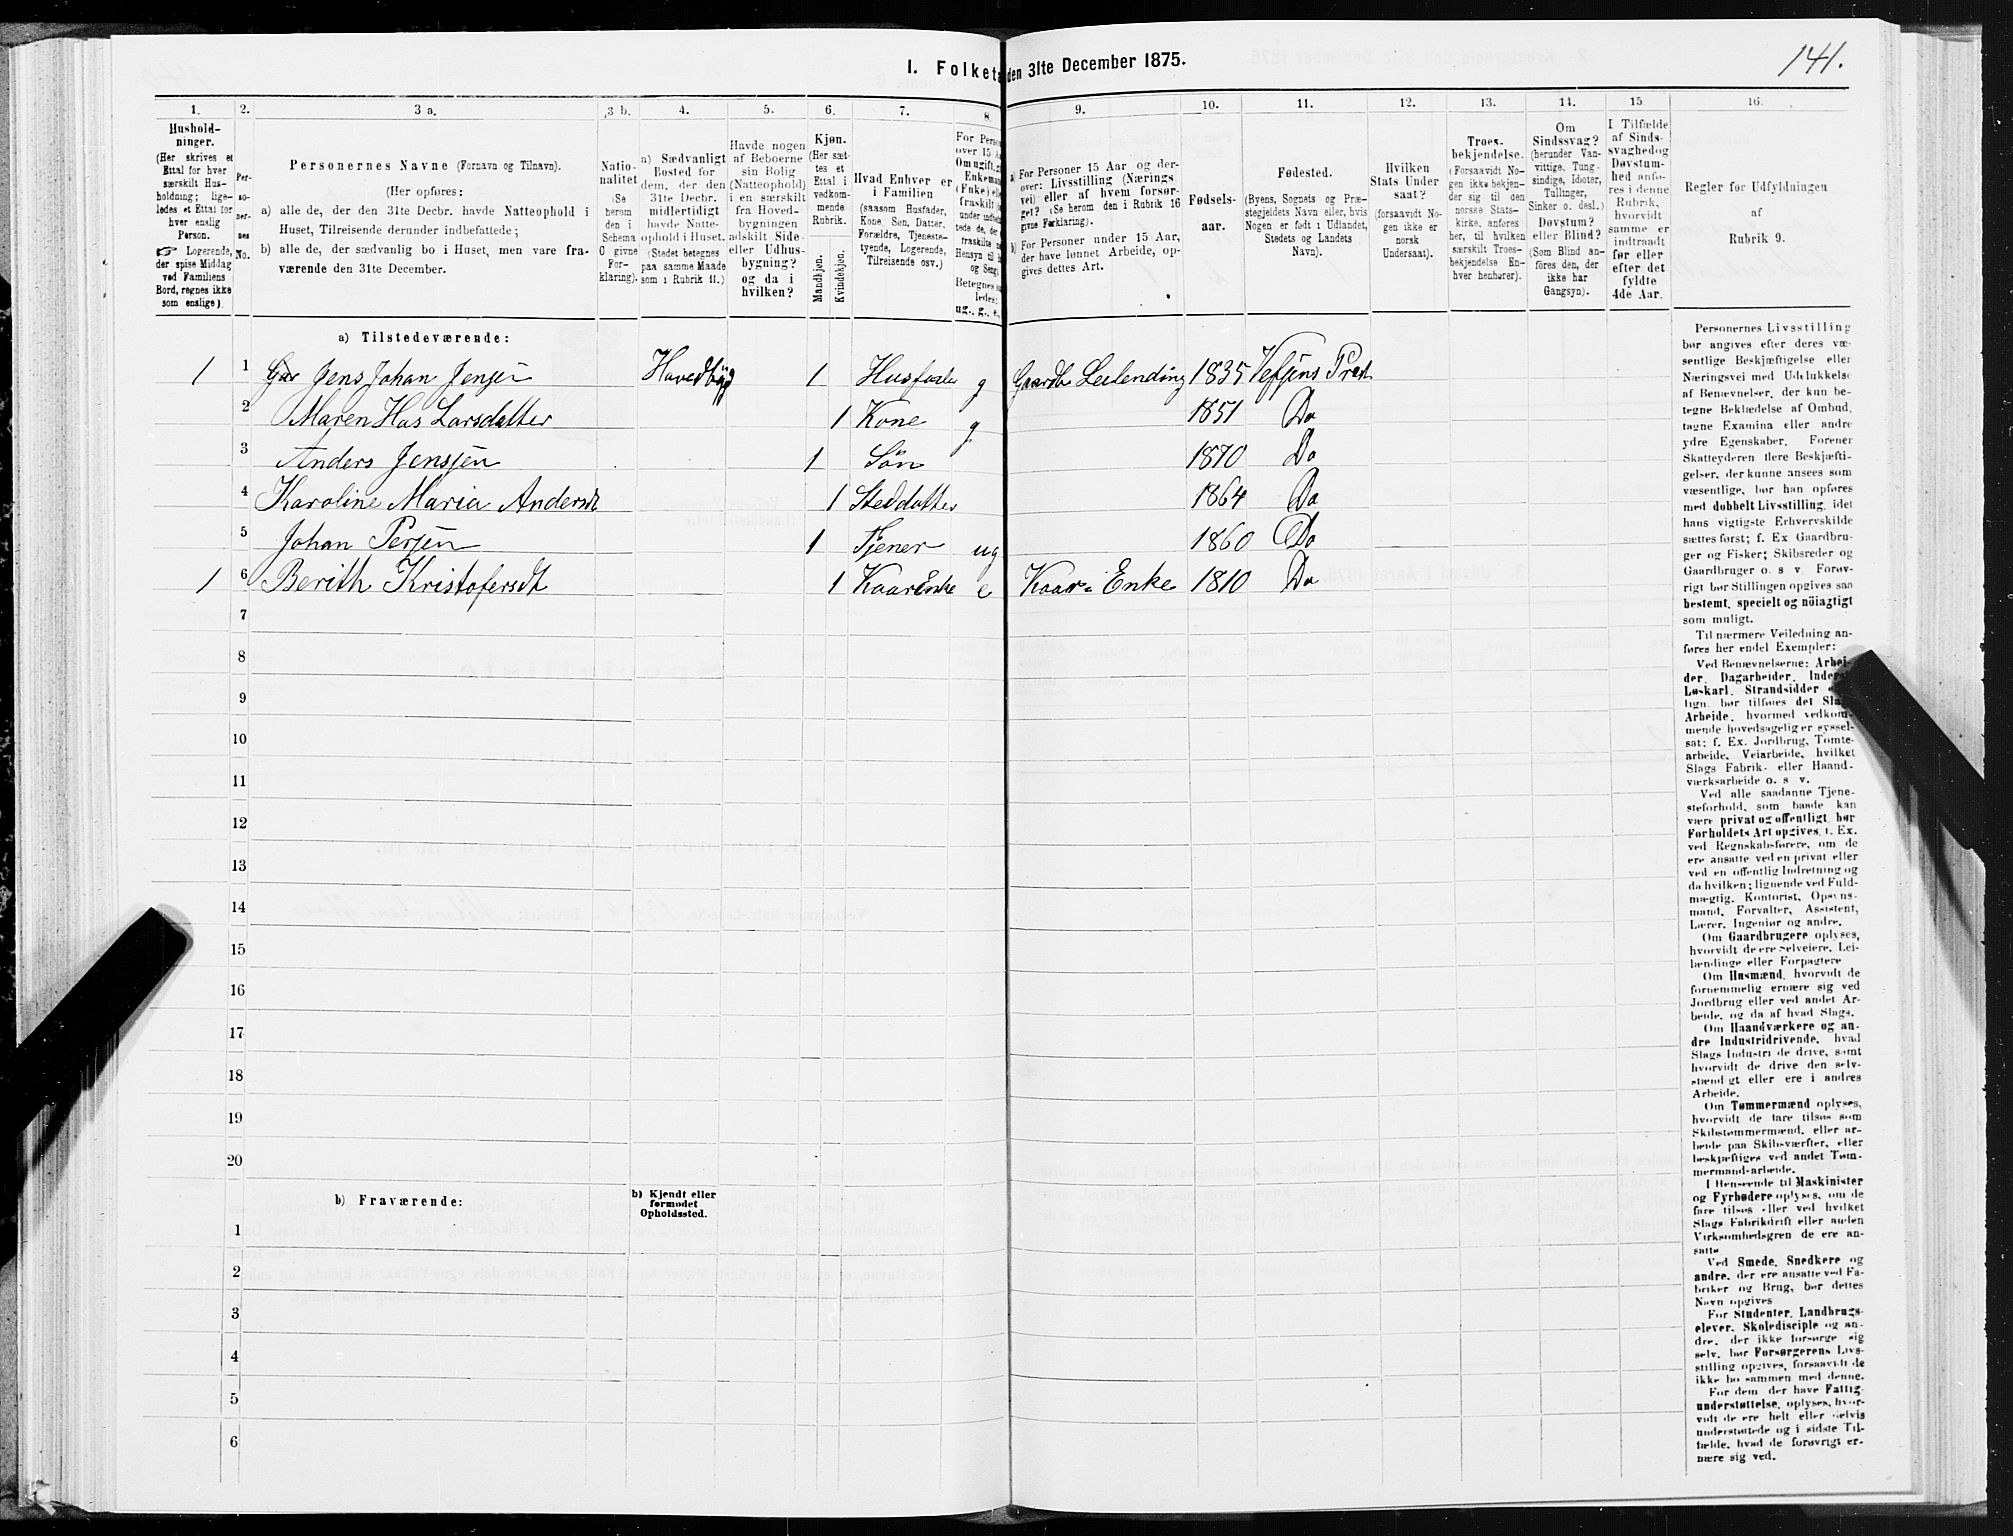 141.
I. Folketa den 31te December 1875.
1. 2. 3 a. 3 b. 4. 5. 6. 7. 8. 9. 10. 11. 12. 13. 14. 15 16.
Hushold-
ninger.
(Her skrives et
Ettal for hver
særskilt Hus-
holdning; lige-
ledes et Ettal for
hver enslig
Person.
☞ Logerende,
der spise Middag
ved Familiens
Bord, regnes ikke
som enslige).
Per-
so-
ner-
nes
No.
Personernes Navne (Fornavn og Tilnavn).
(Her opføres:
a) alle de, der den 31te Decbr. havde Natteophold i
Huset, Tilreisende derunder indbefattede;
b) alle de, der sædvanlig bo i Huset, men vare fra-
værende den 31te December.
Natio-
nalitet
(Se
herom
den i
Schema
C givne
For-
klaring).
a) Sædvanligt
Bosted for
dem, der den
31te Decbr.
midlertidigt
havde Natte-
ophold i Huset.
(Stedet betegnes
paa samme Maade
som i Rubrik 11.)
Havde nogen
af Beboerne
sin Bolig
(Natteophold)
i en særskilt
fra Hoved-
bygningen
adskilt Side-
eller Udhus-
bygning?
og da i
hvilken?
Kjøn.
(Her sæt-
tes et
Ettal i
vedkom-
mende
Rubrik.
Mandkjøn.
Kvindekjøn.
Hvad Enhver er
i Familien
(saasom Husfader,
Kone, Søn, Datter,
Forældre, Tjeneste-
tyende, Logerende,
Tilreisende osv.)
For Perso
over 15 A
Om ugift, g
Enkeman
(Enke) elle
fraskilt
a) For Personer 15 Aar og der-
over: Livsstilling (Nærings
vei) eller af hvem forsør-
get? (Se herom den i Rubrik 16
givne Forklaring).
b) For Personer under 15 Aar,
der have lønnet Arbeide, op-
gives dettes Art.
Fødsels-
aar.
Fødested.
(Byens, Sognets og Præ-
stegjeldets Navn eller, hvis
Nogen er født i Udlandet,
Stedets og Landets
Navn).
Hvilken
Stats Under
saat?
(forsaavidt No-
gen ikke er
norsk
Undersaat).
Troes-
bekjendelse.
(Forsaavidt No-
gen ikke bekjen-
der sig til den
norske Stats-
kirke, anføres
her, til hvilken
særskilt Troes-
bekjendelse En-
hver henhører).
Om
Sindssvag?
(herunder Van-
vittige, Tung-
sindige, Idioter,
Tullinger,
Sinker o. desl.)
Døvstum?
eller Blind?
(Som Blind an-
føres den, der
ikke har
Gangsyn).
I Tilfælde
af Sinds-
svaghed og
Døvstum-
hed anfø-
res i denne
Rubrik,
hvorvidt
samme er
indtraadt
før eller
efter det
fyldte
4de Aar.
Regler for Udfyldningen
af
Rubrik 9.
a) Tilstedeværende:
1 1 Jens Johan Jensen Hovedbyg 1 Husfader g Gaardb Leilending 1835 Vefsens Præst
2 Maren Has Larsdatter 1 Kone g 1851 Do
3 Anders Jensen 1 Søn 1870 Do
4 Karoline Maria Andersdt 1 Steddatter 1864 Do
5 Johan Persen 1 Tjener ug 1860 Do
1 6 Berith Kristofersdt 1 Kaarenke e Kaar-Enke 1810 Do
7
8
9
10
11
12
13
14
15
16
17
18
19
20
b) Fraværende: b) Kjendt eller
formodet
Opholdssted.
1
2
3
4
5
6
Personernes Livsstilling
bør angives efter deres væ-
sentlige Beskjæftigelse eller
Næringsvei med Udelukkelse
af Benævnelser, der kun be-
tegne Beklædelse af Ombud,
tagne Examina eller andre
ydre Egenskaber. Forener
Skatteyderen flere Beskjæfti-
gelser, der kunne ansees som
væsentlige, bør han opføres
med dobbelt Livsstilling, idet
hans vigtigste Erhvervskilde
sættes først; f. Ex Gaardbru-
ger og Fisker; Skibsreder og
Gaardbruger o. s v. Forøv-
rigt bør Stillingen opgives saa
bestemt, specielt og nöiagtigt
som muligt.
Til nærmere Veiledning an-
føres her endel Exempler:
Ved Benævnelserne: Arbei-
der, Dagarbeider, Inders
Løskarl, Strandsidder
lign. bør tilføres det Slag
Arbeide, hvormed vedkom-
mende hovedsagelig er syssel-
sat; f. Ex. Jordbrug, Tomte-
arbeide, Veiarbeide, hvilket
Slags Fabrik- eller Haand-
værksarbeide o. s v.
Ved alle saadanne Tjene-
steforhold, som baade kan
være privat og offentligt, bør
Forholdets Art opgives, f. Ex.
ved Regnskabsførere, om de
ere ansatte ved en privat eller
ved en offentlig Indretning og
da hvilken; lignende ved Fuld-
mægtig, Kontorist, Opsyns-
mand, Forvalter, Assistent,
Lærer, Ingeniør og andre.
Om Gaardbrugere oplyses,
hvorvidt de ere Selveiere, Lei-
lændinge eller Forpagtere
Om Husmænd, hvorvidt de
fornemmelig ernære sig ved
Jordbrug eller ved andet Ar-
beide, og da af hvad Slags.
Om Haandværkere og an-
dre Industridrivende, hvad
Slags Industri de drive, samt
hvorvidt de drive den selv-
stændigt eller ere i andres
Arbeide.
Om Tømmermænd oplyses,
hvorvidt de fare tilsøs som
Skibstømmermænd, eller ar-
beide paa Skibsværfter, eller
beskjæftiges ved andet Tøm-
mermandarbeide.
I Henseende til Maskinister
og Fyrbødere oplyses, om de
fare tilsøs eller ved hvilket
Slags Fabrikdrift eller anden
Virksomhedsgren de ere an-
satte
Ved Smede, Snedkere og
andre, der ere ansatte ved Fa-
briker og Brug, bør dettes
Navn opgives
For Studenter, Landbrugs-
elever, Skoledisciple og an-
dre, der ikke forsørge sig
selv, bør Forsørgerens Livs-
stilling opgives, forsaavidt de
ikke bo sammen med denne.
For dem, der have Fattig-
understøttelse, oplyses, hvor-
vidt de ere helt eller delvis
understøttede og i sidste Til-
fælde, hvad de forøvrigt er-
nære sig ved.